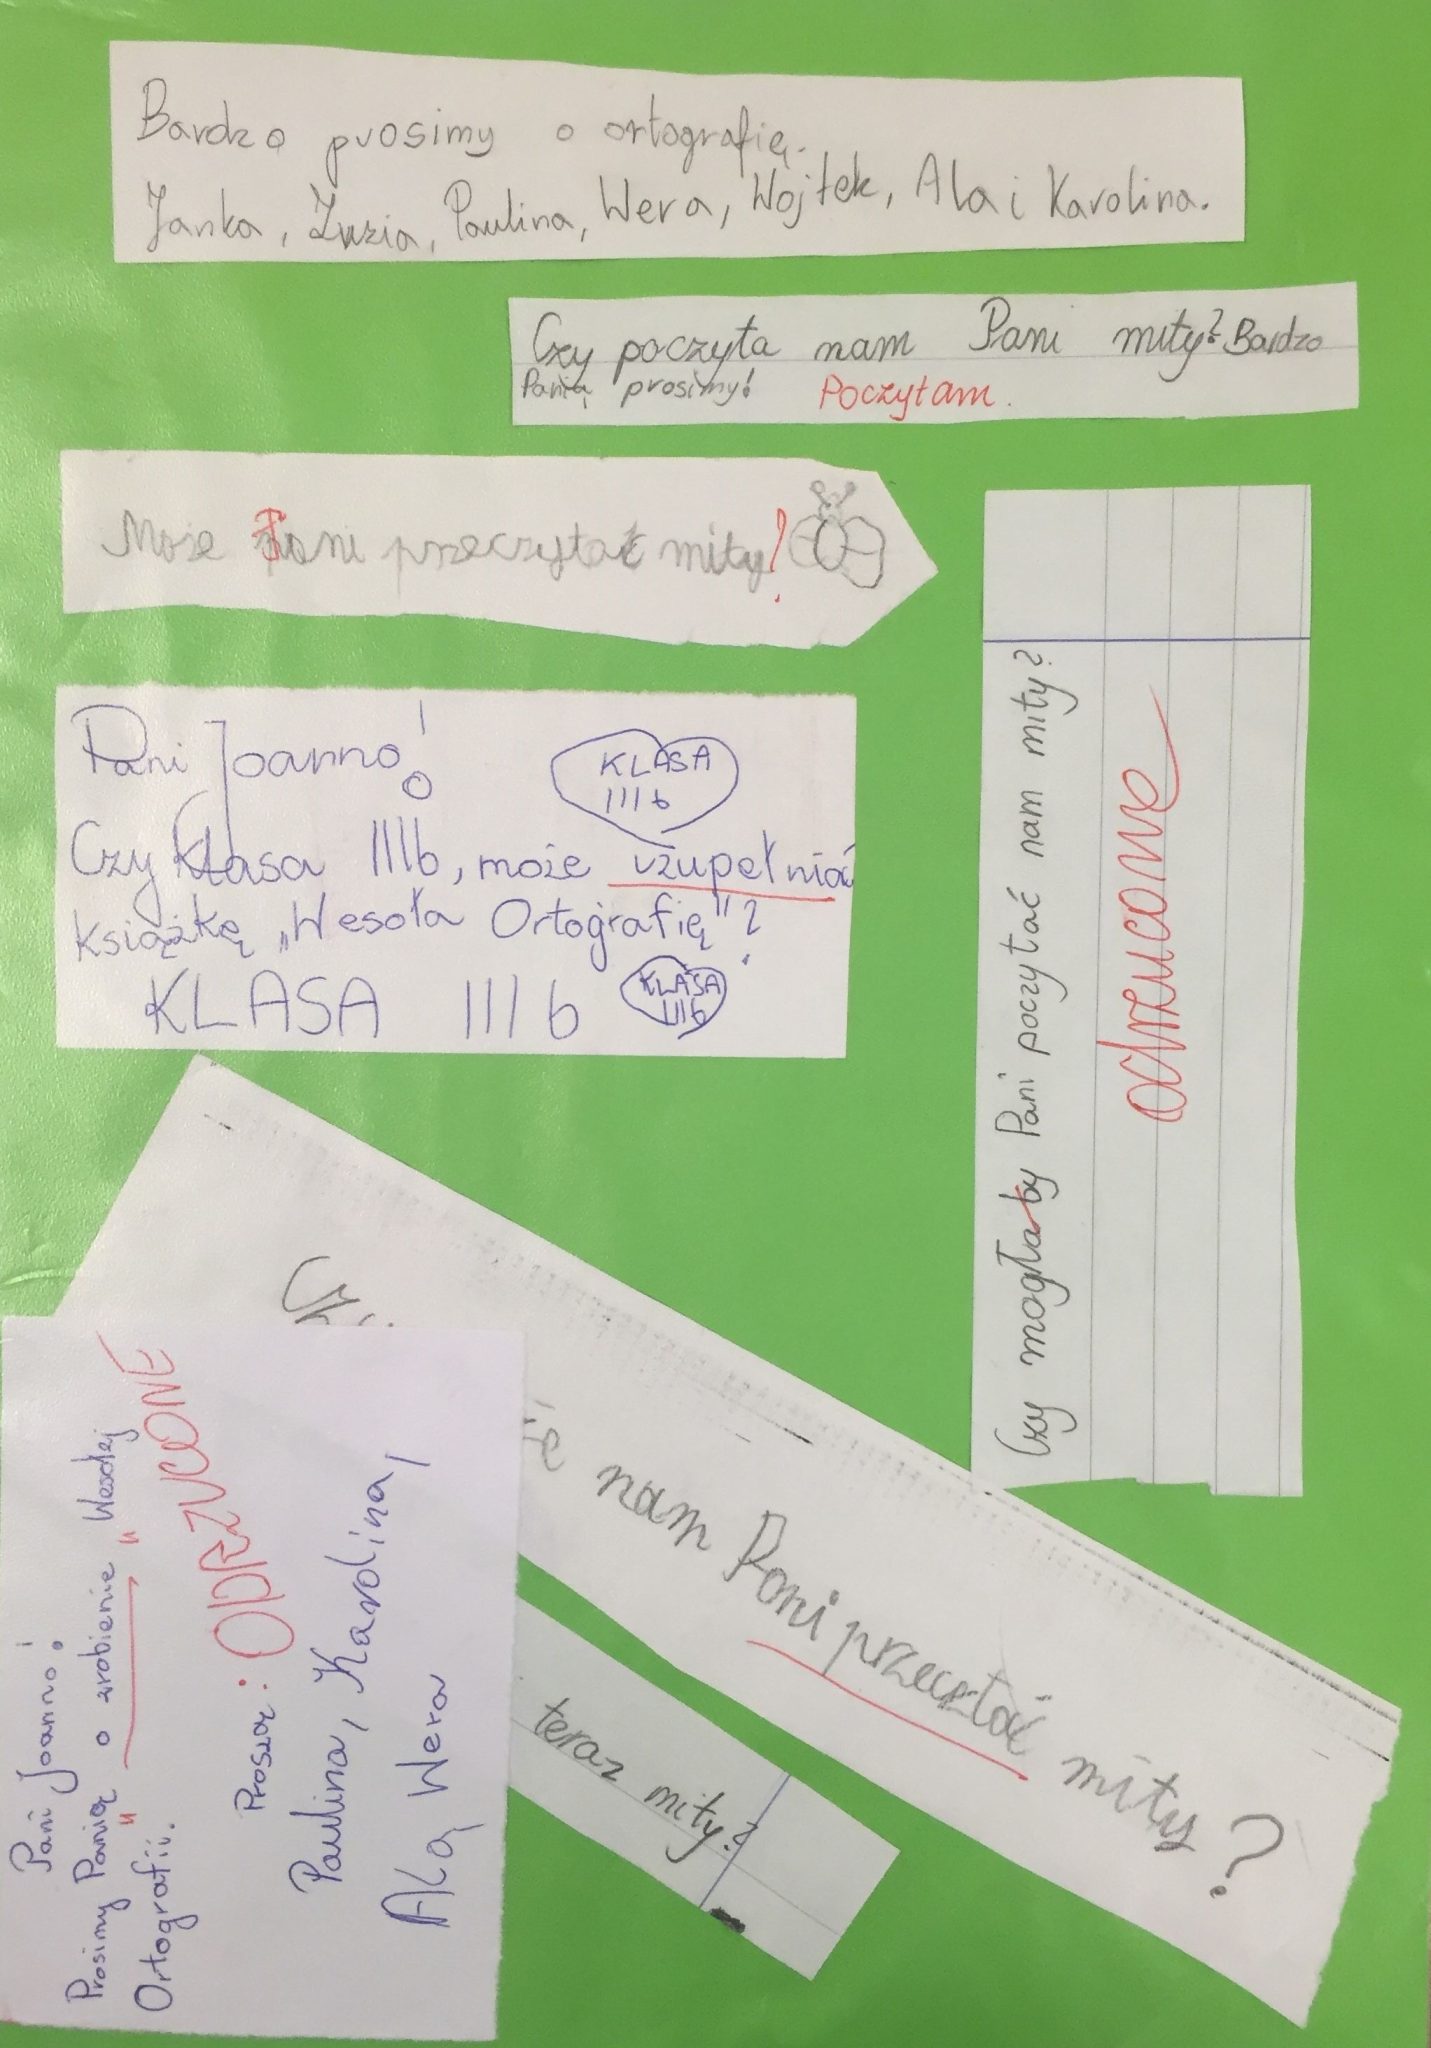 Bardzo prosimy o ortografię.
Janka, Zuzia, Paulina, Wera, Wojtek, Ala i Karolina.
Czy poczyta nam Pani mity? Bardzo
Panią prosimy! Poczytam.
Może Pani przeczytać mity?
Pani Joanno!
KLASA
III b
Czy klasa III b, może uzupełniać
książkę „Wesoła Ortografię"?
KLASA III b
KLASA
III b
Czy mogłaby Pani poczytać nam mity?
odrzucone
nam Pani przecztać mity?
teraz mity?
Pani Joanno!
Prosimy Panią o zrobienie „Wesołej
Ortografii.
ODRZUCONE
Proszą:
Paulina, Karolina,
Ala, Wera